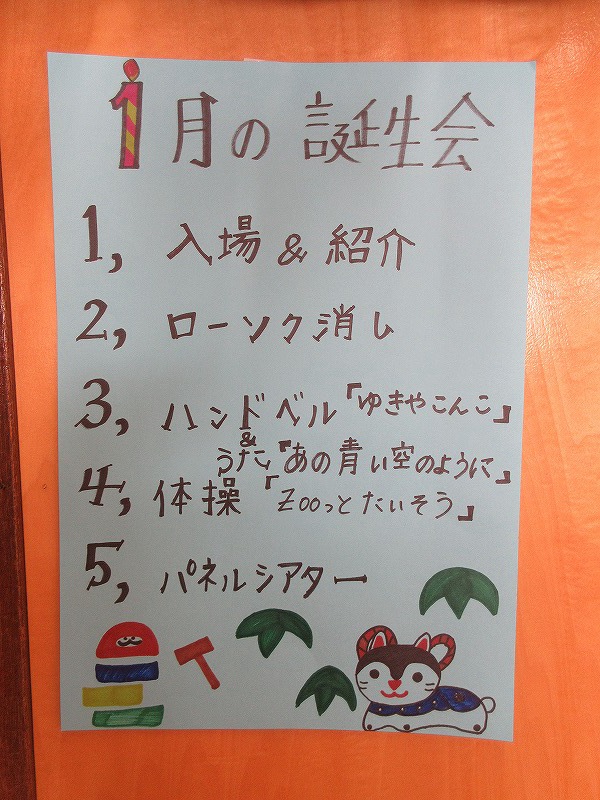 1月の誕生会
1, 入場 & 紹介
2, ローソク消し
3, ハンドベル「ゆきやこんこ」
&
うた『あの青い空のように』
4, 体操「Zooっとたいそう」
5, パネルシアター